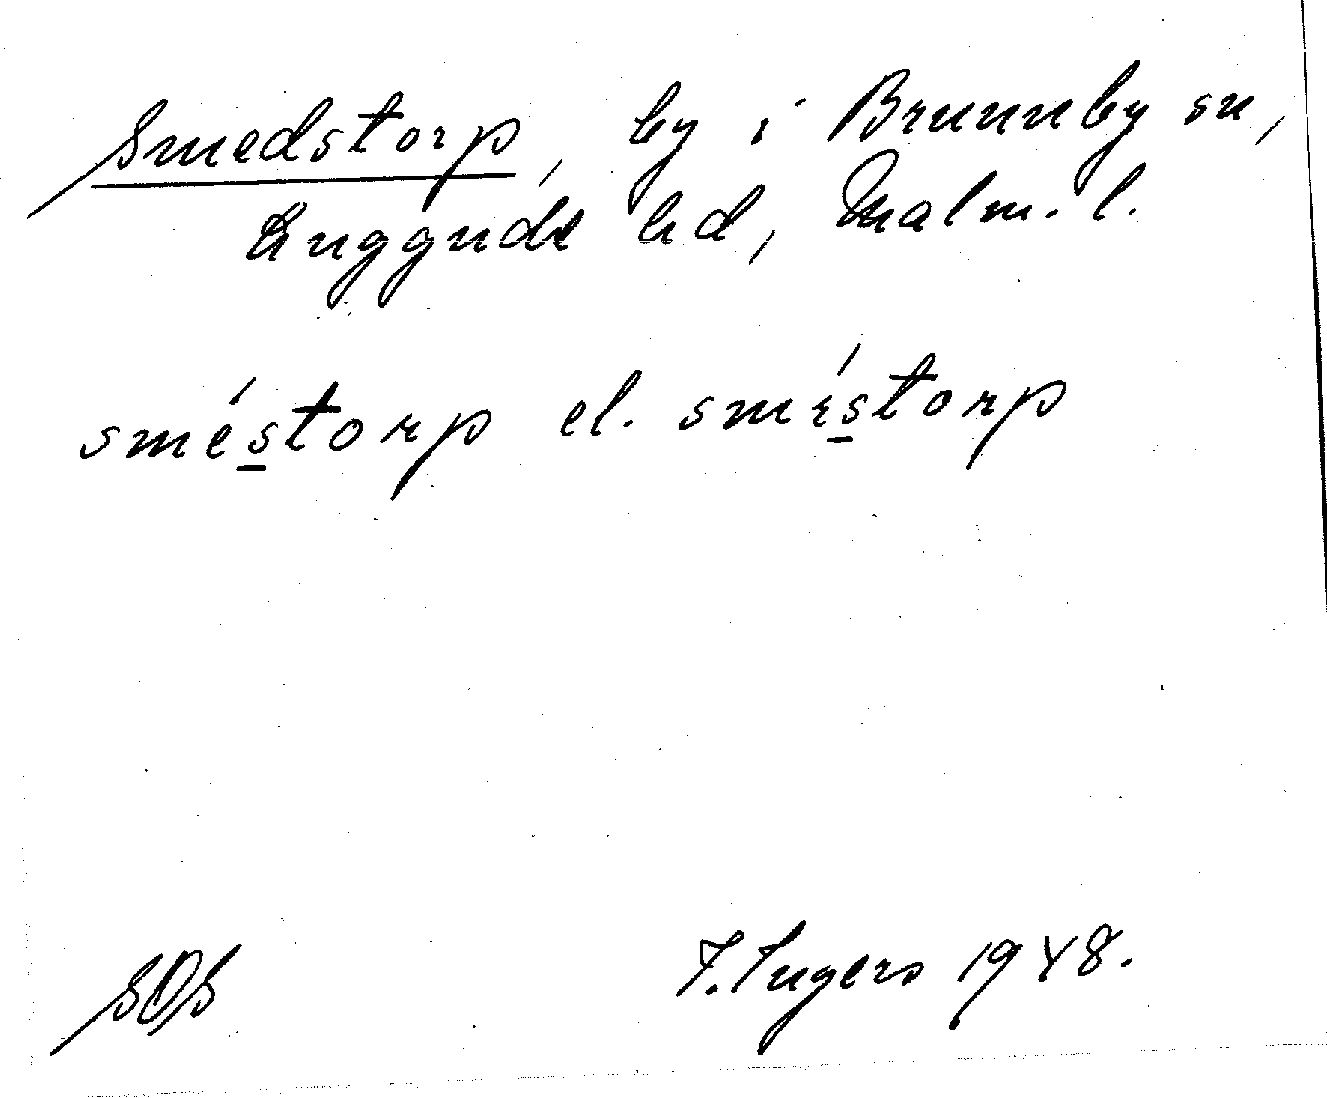 Smedstorp, by i Brunnby sn,
Luggude hd, Malm. l.
sméstorp el. smɛ́storp
SOS
I. Ingers 1948.